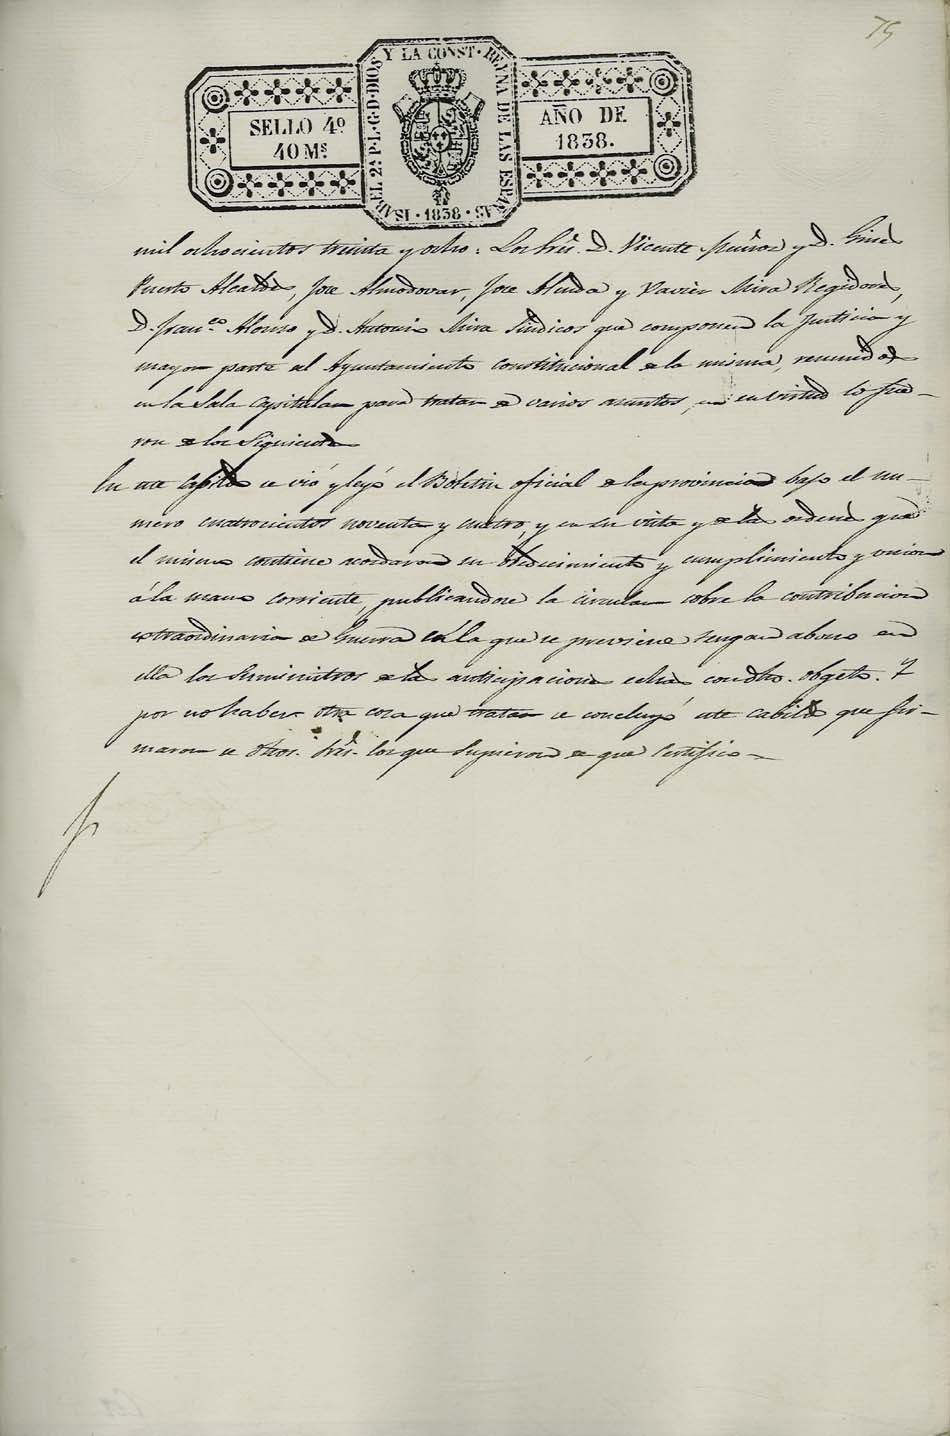 75
SELLO 4º
40 Mˢ.
ISABEL 2ª P. L. G. D. DIOS Y LA CONST. REYNA DE LAS ESPAÑAS
· 1838 ·
AÑO DE
1838.
mil ochocientos treinta y ocho: Los Sres. D. Vicente Muñoz y D. Gines
Puerto Alcaldes, Jose Almodovar, Jose Alenda y Xavier Mira Regidores,
D. Franco. Alonso y D. Antonio Mira Sindicos que componen la Justicia y
mayor parte del Ayuntamiento constitucional de la misma, reunidos
en la Sala Capitular para tratar de varios asuntos, en su virtud lo fue-
ron de los Siguientes
En este Cabildo se vió y leyó el Boletin oficial de la provincia bajo el nu-
mero cuatrocientos noventa y cuatro, y en su vista y de las ordenes que
el mismo contiene acordaron su obedecimiento y cumplimiento y union
á la mano corriente, publicandose la circular sobre la contribucion
extraordinaria de Guerra en la que se previene tengan abono en
ella los Suministros de la anticipacion echa con dho. obgeto. Y
por no haber otra cosa que tratar se concluyó este cabildo que fir-
maron de dhos. Sres. los que Supieron de que Certifico